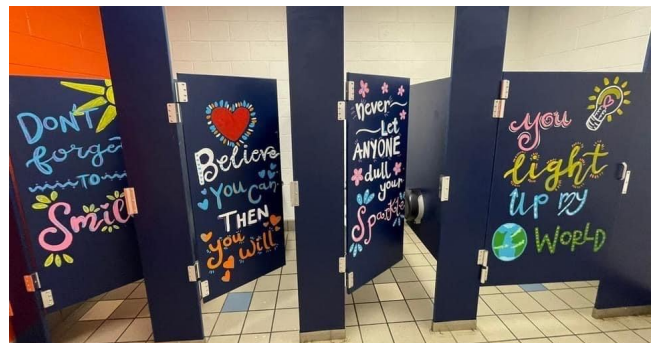 DON'T
forget
TO
Smile
Believe
You Can
THEN
you will
never
Let
ANYONE
dull
your
Sparkle
you
light
UP MY
WORLD